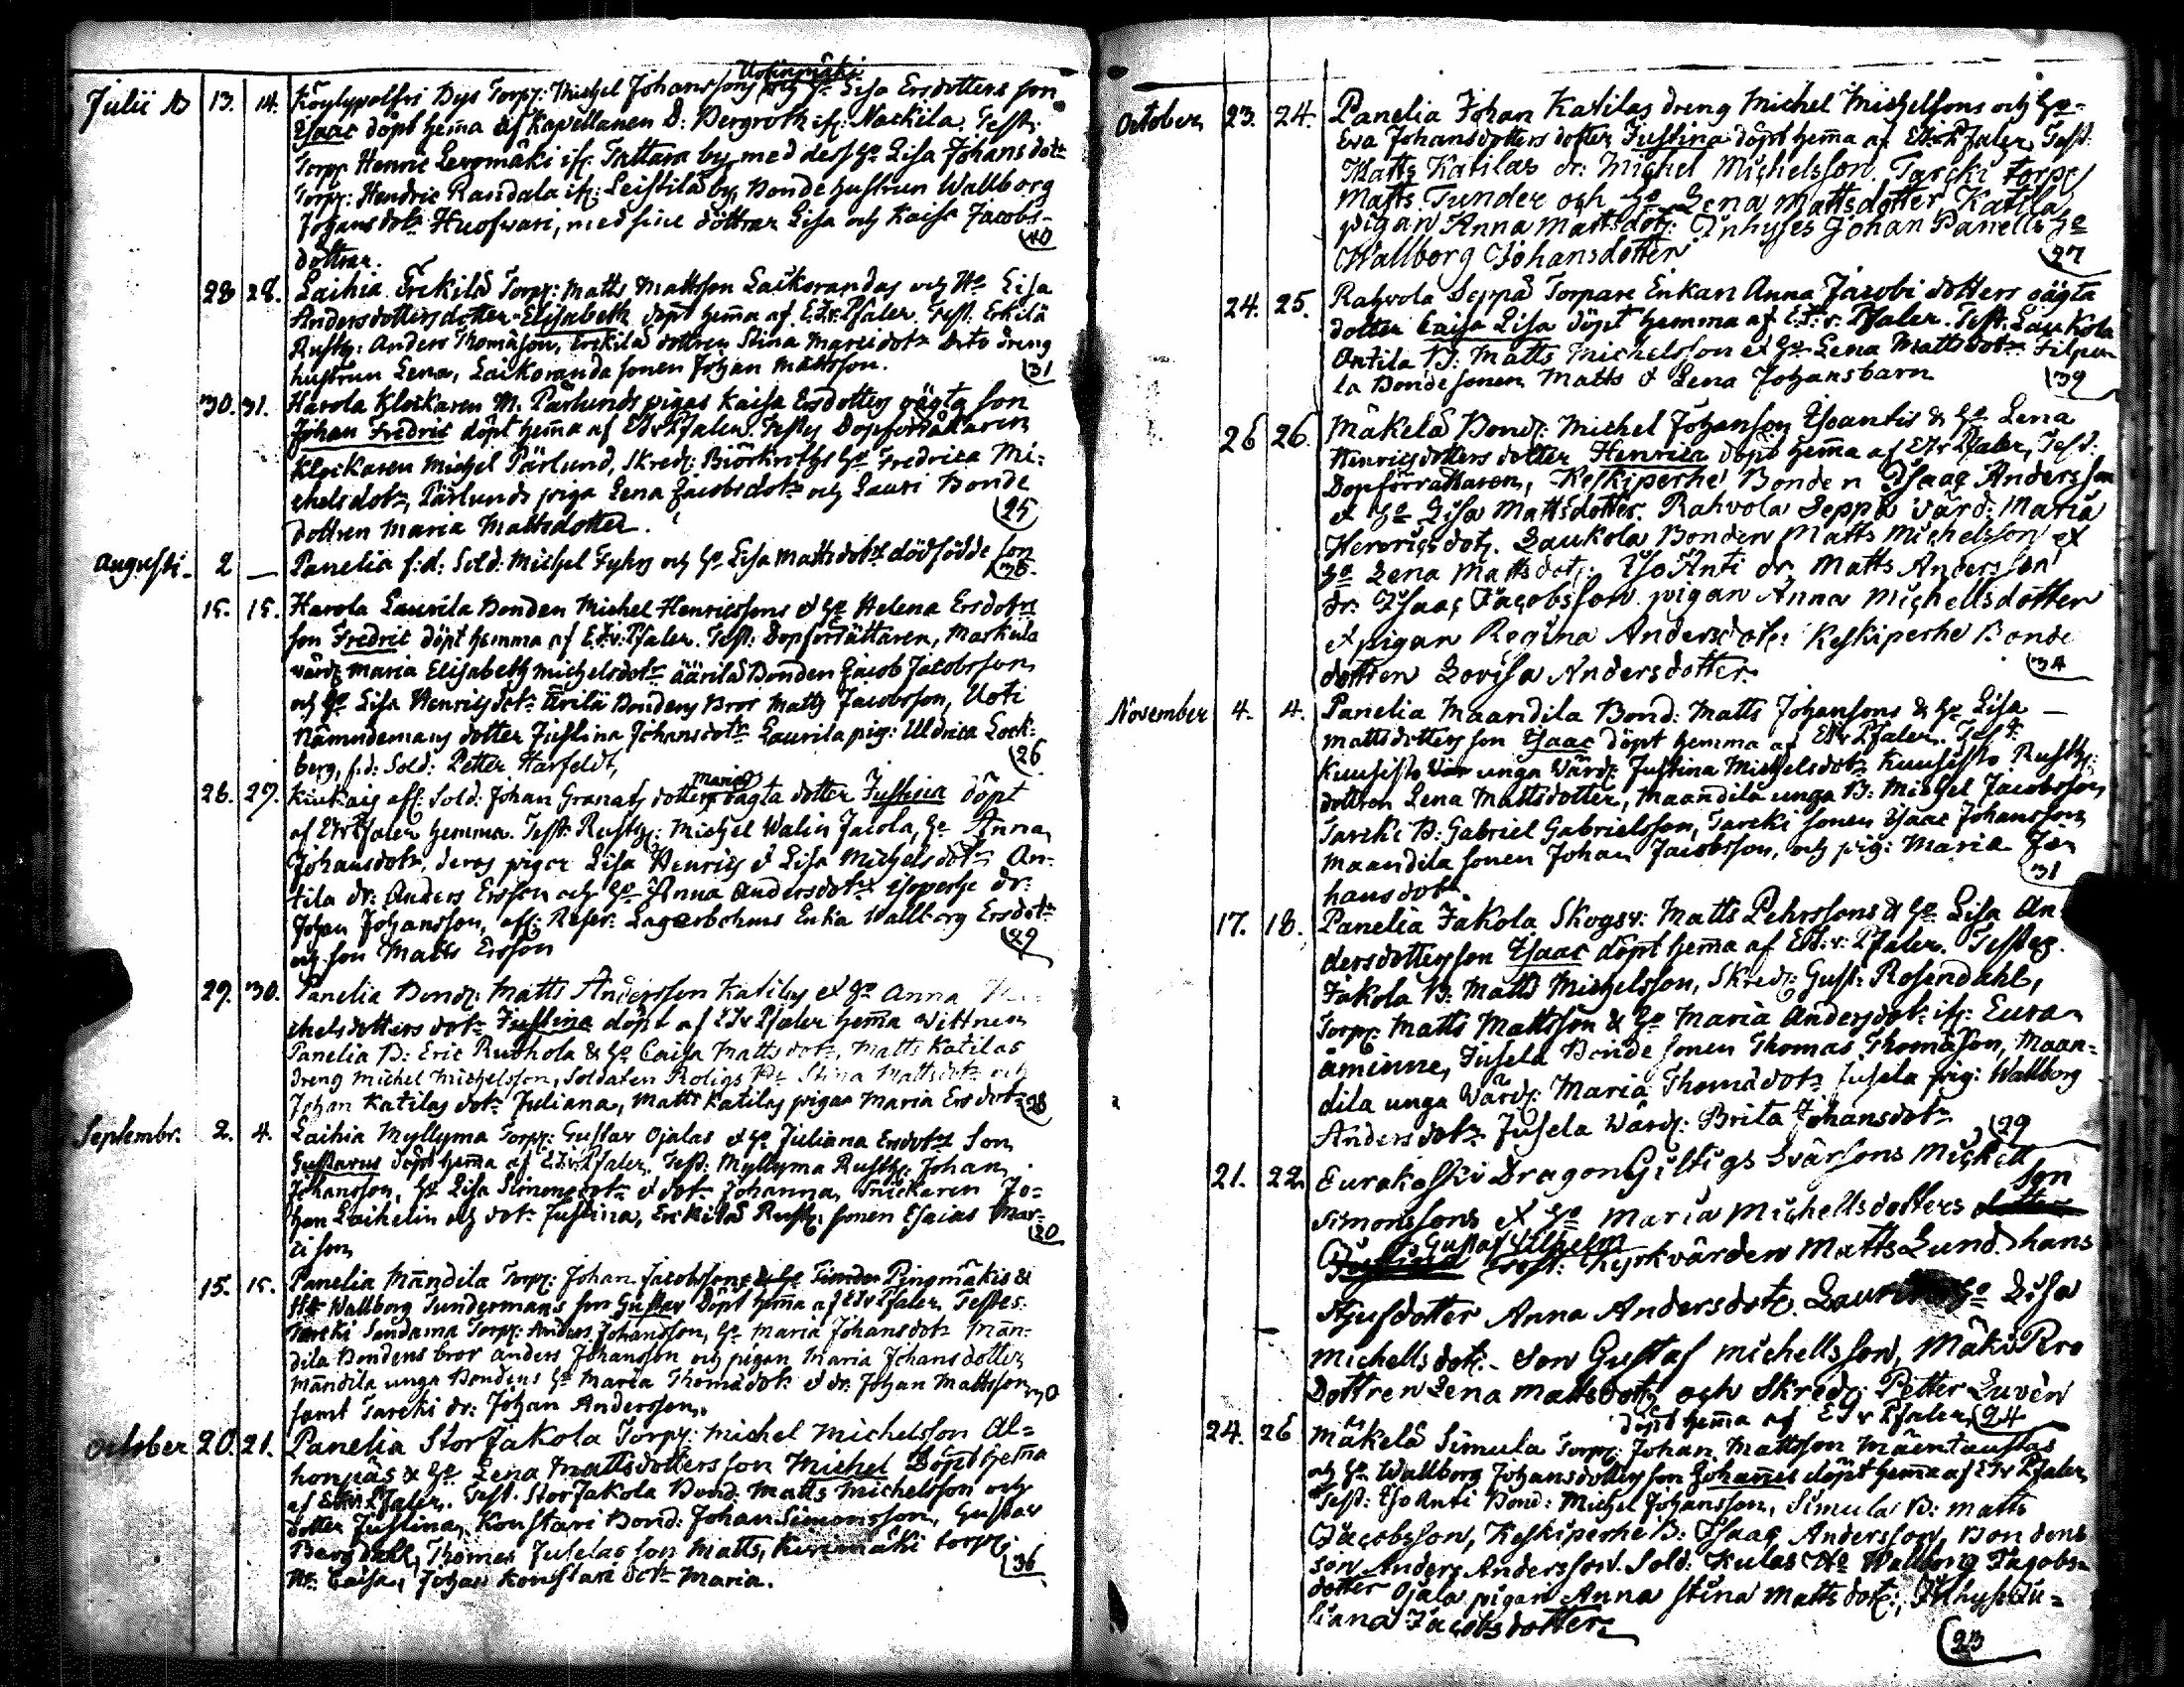 Julii 13. 14. Köylypolfri Bys Torp: Michel Johanssons och Ho Lisa Ersdotters son
Isaac döpt hema af Kapellanen D: Bergroth if: Nackila. Test:
Torp: Henric Levomäki if: Tattara by, med dess Ho Lisa Johansdotr
Torp: Hendric Randala if: Leistilä by, Bonde hustrun Wallborg
Johansdotr Huofwari, med sine döttrar Lisa och Kaisa Jacobs-
döttrar. 40
28 28. Laihia Erckilä Torp: Matts Mattsson Laikorandas och Ho Lisa
Andersdotters dotter Elisabeth döpt hema af E.J.v.Pfaler. Test. Erkilä
Rusth: Anders Thomäson, Erckilä dottren Stina Mariedotr Dito dreng
hustrun Lena, Laikoranda sonen Johan Mattsson. 31
30. 31. Harola Klockaren M. Pärlunds pigas Kaisa Ersdotters oägta son
Johan Fredric döpt hema af EJvPfaler. Testes Dopförrättaren
Klockaren Michel Pärlund, Skred: Biörkroths Ho Fredrica Mi-
chelsdotr, Pärlunds piga Lena Jacobsdotr och Lauri Bonde
dottren Maria Mattsdotter. 25
Augusti 2 — Panelia f:d: Sold: Michel Fyhrs och Ho Lisa Mattsdotrs dödfödde son
15. 15. Harola Laurila Bonden Michel Henricssons & Ho Helena Ersdotrs
son Fredric döpt hemma af E.J.v.Pfaler. Test: Dopförrättaren, Markula
värd: Maria Elisabeth Michelsdotr äärilä Bonden Jacob Jacobsson
och Ho Lisa Henricsdotr ärilä Bondens Bror Matts Jacobsson, Uoti
Nämndemans dotter Justina Johansdotr Laurila pig: Uldrica Lock-
berg, f:d: Sold: Petter Harfeldt, 26
26. 27. Kiukais aff: Sold: Johan Granats dotters Marias oägta dotter Justina döpt
af EJvPfaler hemma. Test: Rusth: Michel Walin Jacola, Ho Anna
Johansdotr, deras pigor Lisa Henrics & Lisa Michelsdotr An-
tila dr: Anders Ersson och Ho Anna Andersdotr Isoperhe dr:
Johan Johansson, aff: Reser: Lagerbohms Enka Wallborg Ersdotr
och son Matts Ersson 29
29. 30. Panelia Bond: Matts Andersson Katilas & Ho Anna Mi-
chelsdotters dotr Justina döpt af EJvPfaler hema Wittnen
Panelia B: Eric Ruohola & Ho Caisa Mattsdotr, Matts Katilas
dreng Michel Michelsson, Soldaten Roligs Ho Stina Mattsdotr och
Johan Katilas dotr Juliana, Matts Katilas pigan Maria Ersdotr 28
Septembr: 2. 4. Laihia Myllyma Torp: Gustav Ojalas & Ho Juliana Ersdotrs Son
Gustavus döpt hema af EJvPfaler. Test: Myllyma Rusth: Johan
Johansson, Ho Lisa Simonsdotr & dotr Johanna, Snickaren Jo-
han Laihelin och dotr Justina, Erckilä Rusth: sonen Esaias Mar-
ci son 30
15. 15. Panelia Mändila Torp: Johan Jacobssons Pinomäkis &
Ho Wallborg Tundermans son Gustav döpt hema af EJvPfaler Testes.
Tarcki Sandama Torp: Anders Johansson, Ho Maria Johansdotr Män-
dila Bondens bror Anders Johansson och pigan Maria Johansdotter
Mändila unga Bondens Ho Maria Thomädotr & dr: Johan Mattsson
samt Tarcki dr: Johan Andersson.
October 20. 21. Panelia StorJakola Torp: Michel Michelsson Al-
honpäs & Ho Lena Mattsdotters son Michel Döpt hema
af EJvPfaler. Test. StorJakola Bond. Matts Michelsson och
dotter Justina, Konstari Bond: Johan Simonsson, Gustav
Bergdahl, Thomas Juselas son Matts, Kuromäki torp:
Ho: Caisa, Johan Konstari dotr Maria. 36
October 23. 24. Panelia Johan Katilas dreng Michel Michelsons och Ho
Eva Johansdotters dotter Justina döpt hema af EJvPfaler, Test:
Matts Katilas dr: Michel Michelsson. Tarcki torp:
Matts Tunder och Ho Lena Mattsdotter, Katila
pigan Anna Mattsdotr: Inhyses Johan Panells Ho
Wallborg Johansdotter 27
24. 25. Rahvola Seppä Torpare Enkan Anna Jacobi dotters oägta
dotter Caisa Lisa döpt hemma af E.J.v.Pfaler. Test: Laukola
Antila B: Matts Michelsson & Ho Lena Mattsdotr Filpu-
la Bonde sonen Matts & Lena Johansbarn 39
26 26. Mäkelä Bond: Michel Johanson Isoantis & Ho Lena
Henricsdotters dotter Henrica döpt hema af EJvPfaler, Test:
Dopförrättaren, Keskiperhe Bonden Isaac Andersson
& Ho Lisa Mattsdotter. Rahvola Seppä värd: Maria
Henricsdotr. Laukola Bonden Matts Michelsson &
Ho Lena Mattsdotr: IsoAnti dr: Matts Andersson
dr: Isaac Jacobsson pigan Anna Michellsdotter
& pigan Regina Andersdotr: Keskiperhe Bonde
dottren Lovisa Andersdotter. 34
November 4. 4. Panelia Maandila Bond: Matts Johansons & Ho Lisa —
Mattsdotters son Isaac döpt hemma af EJvPfaler. Test:
Kuusisto unga Värd: Justina Michelsdotr Kuusisto Rusth:
dottren Lena Mattsdotter, Maandila unga B: Michel Jacobsson
Tarcki B: Gabriel Gabrielsson, Tarcki sonen Isaac Johansson
Maandila sonen Johan Jacobsson, och pig: Maria Jo-
hansdotr. 31
17. 18. Panelia Jakola Skogsv: Matts Pehrssons & Ho Lisa An-
dersdotters son Isaac döpt hema af E.J.v.Pfaler. Testes.
Jakola B: Matts Michelsson, Skred: Gust: Rosendahl,
Torp: Matts Mattsson & Ho Maria Andersdotr if: Eura-
åminne, Jusela Bonde sonen Thomas Thomäson, Maan-
dila unga Värd: Maria Thomädotr Jusela pig: Wallborg
Andersdotr Jusela Värd: Brita Johansdotr 29
21. 22. Eurakoski Dragon Giltigs Svärsons Michell
Simonssons & Ho Maria Michellsdotters son
Gustaf Wilhelm Test: Kyrkvärden Matts Lund hans
Stjufdotter Anna Andersdotr. Ho Lisa
Michellsdotr. Son Gustaf Michellsson, Mäki Pero
Dottren Lena Mattsdotr och Skred: Petter Luvèn
döpt hema af EJvPfaler 24
24. 26 Mäkelä Simula Torp: Johan Mattsson Mäentaustas
och Ho Wallborg Johansdotters son Johannes döpt hema af EJvPfaler
Test: IsoAnti Bond: Michel Johansson, Simula B: Matts
Jacobsson, Keskiperhe B: Isaac Andersson, Bondens
son Anders Andersson. Sold: Kulas Ho Wallborg Jacobs-
dotter Ojala pigan Anna Stina Mattsdotr:, Inhyses Ju-
liana Jacobsdotter. 23